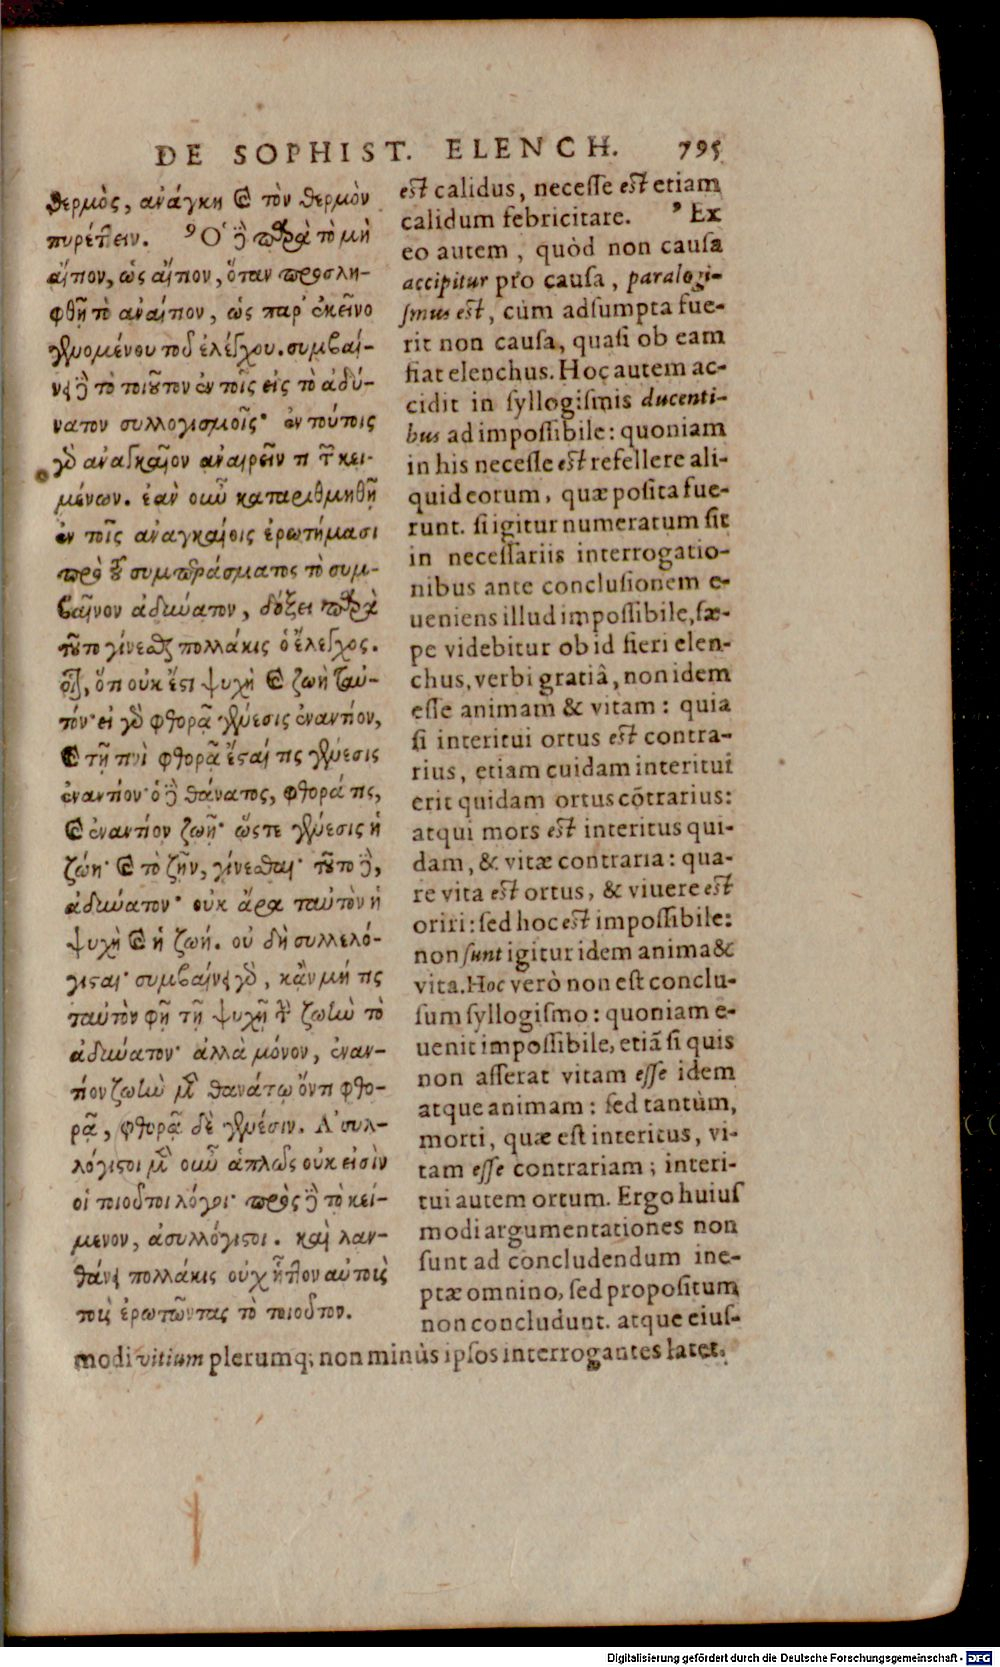 DE SOPHIST. ELENCH. 795
θερμὸς, ἀνάγκη καὶ τὸν θερμὸν
πυρέττειν. ⁹ Ὁ δὲ παρὰ τὸ μὴ
αἴτιον, ὡς αἴτιον, ὅταν προσλη-
φθῇ τὸ ἀναίτιον, ὡς παρ' ἐκεῖνο
γινομένου τοῦ ἐλέγχου. συμβαί-
νει δὲ τὸ τοιοῦτον ἐν τοῖς εἰς τὸ ἀδύ-
νατον συλλογισμοῖς· ἐν τούτοις
γὸ ἀναγκαῖον ἀναιρεῖν τι τῶν κει-
μένων. ἐὰν οὖν καταριθμηθῇ
ἐν τοῖς ἀναγκαίοις ἐρωτήμασι
πρὸς τοῦ συμπεράσματος τὸ συμ-
βαῖνον ἀδύνατον, δόξει παρὰ
τοῦτο γίνεσθαι πολλάκις ὁ ἔλεγχος.
οἷον, ὅτι οὐκ ἔστι ψυχὴ καὶ ζωὴ ταὐ-
τόν· εἰ γὸ φθορᾷ γένεσις ἐναντίον,
καὶ τῇ τινὶ φθορᾷ ἔσται τις γένεσις
ἐναντίον· ὁ δὲ θάνατος, φθορά τις,
καὶ ἐναντίον ζωῇ· ὥστε γένεσις ἡ
ζωή· καὶ τὸ ζῆν, γίνεσθαι· τοῦτο δὲ,
ἀδύνατον· οὐκ ἄρα ταὐτὸν ἡ
ψυχὴ καὶ ἡ ζωή. οὐ δὴ συλλελό-
γισται· συμβαίνει γὸ, κἂν μή τις
ταὐτὸν φῇ τῇ ψυχῇ τὴν ζωὴν τὸ
ἀδύνατον· ἀλλὰ μόνον, ἐναν-
τίον ζωὴν μὲν θανάτῳ ὄντι φθο-
ρᾷ, φθορᾷ δὲ γένεσιν. Ἀσυλ-
λόγιστοι μὲν οὖν ἁπλῶς οὐκ εἰσὶν
οἱ τοιοῦτοι λόγοι· πρὸς δὲ τὸ κεί-
μενον, ἀσυλλόγιστοι. καὶ λαν-
θάνει πολλάκις οὐχ ἧττον αὐτοὺς
τοὺς ἐρωτῶντας τὸ τοιοῦτον.
est calidus, necesse est etiam
calidum febricitare. ⁹ Ex
eo autem, quòd non causa
accipitur pro causa, paralogi-
smus est, cùm adsumpta fue-
rit non causa, quasi ob eam
fiat elenchus. Hoc autem ac-
cidit in syllogismis ducenti-
bus ad impossibile: quoniam
in his necesse est refellere ali-
quid eorum, quæ posita fue-
runt. si igitur numeratum sit
in necessariis interrogatio-
nibus ante conclusionem e-
ueniens illud impossibile, sæ-
pe videbitur ob id fieri elen-
chus, verbi gratiâ, non idem
esse animam & vitam: quia
si interitui ortus est contra-
rius, etiam cuidam interitui
erit quidam ortus cõtrarius:
atqui mors est interitus qui-
dam, & vitæ contraria: qua-
re vita est ortus, & viuere est
oriri: sed hoc est impossibile:
non sunt igitur idem anima &
vita. Hoc verò non est conclu-
sum syllogismo: quoniam e-
uenit impossibile, etiã si quis
non asserat vitam esse idem
atque animam: sed tantùm,
morti, quæ est interitus, vi-
tam esse contrariam; interi-
tui autem ortum. Ergo huius
modi argumentationes non
sunt ad concludendum ine-
ptæ omnino, sed propositum
non concludunt. atque eius-
modi vitium plerumq; non minùs ipsos interrogantes latet.
Digitalisierung gefördert durch die Deutsche Forschungsgemeinschaft - DFG